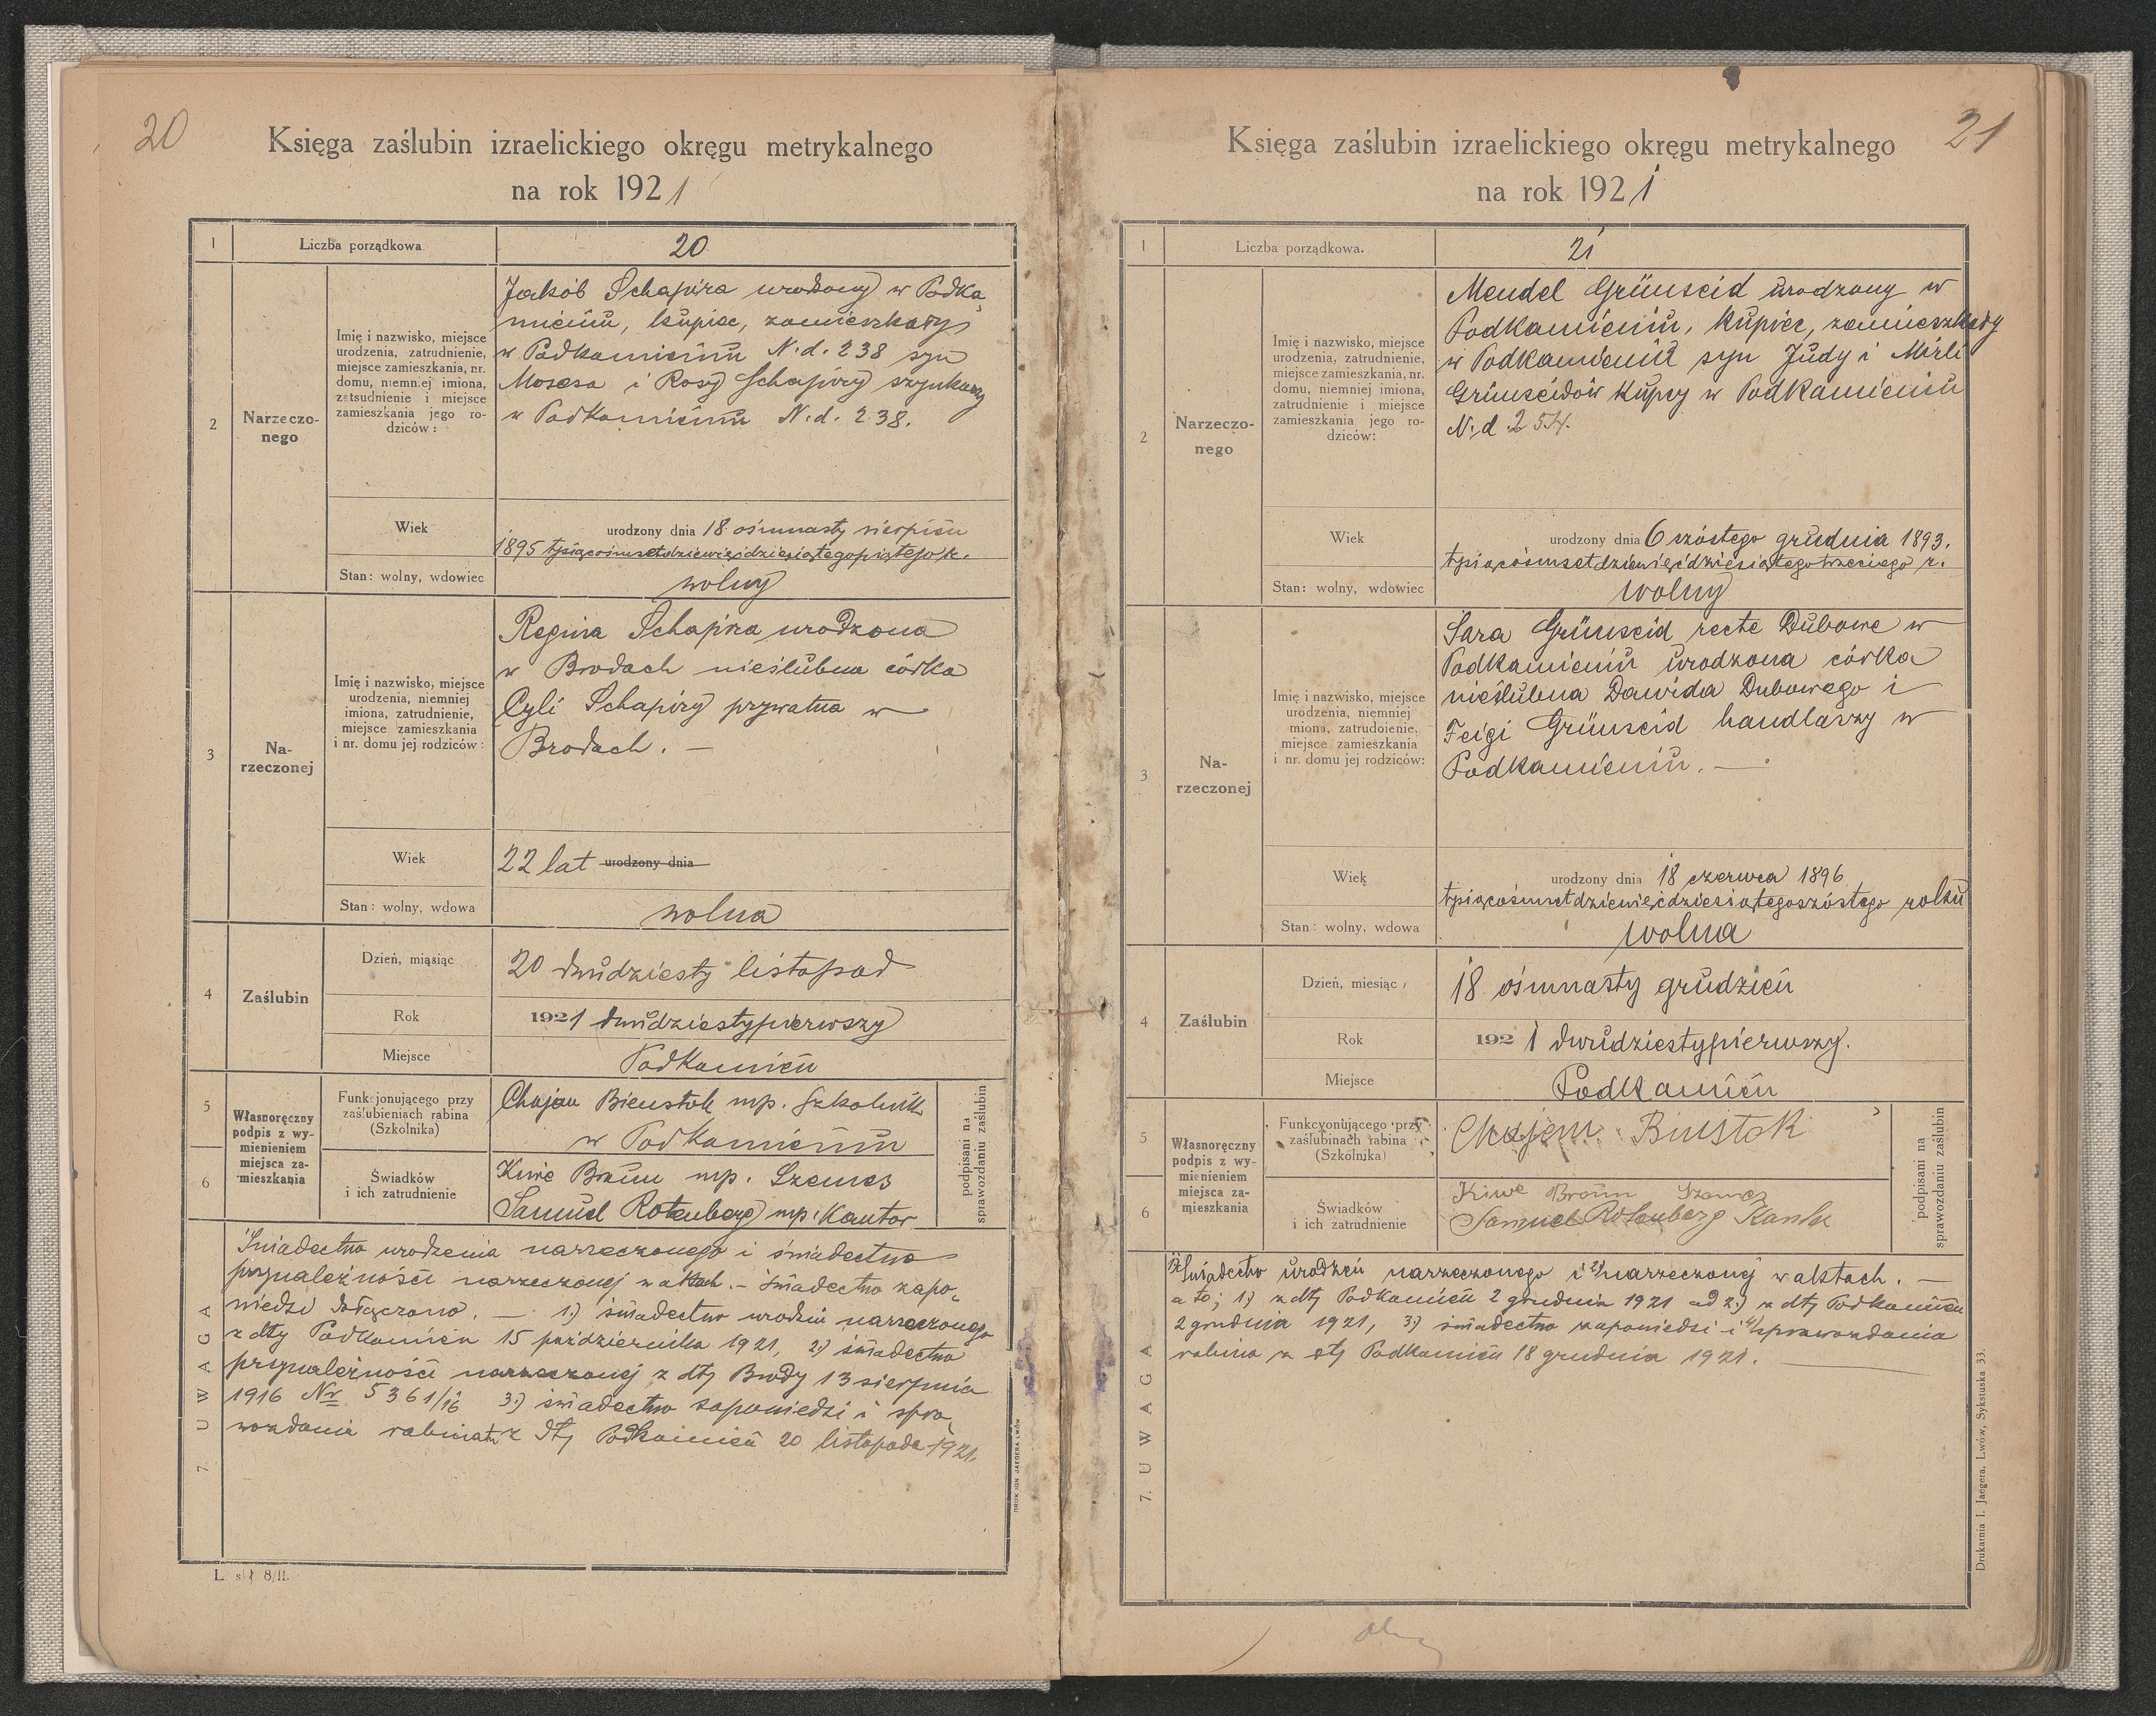 20
Księga zaślubin izraelickiego okręgu metrykalnego
na rok 1921
1
Liczba porządkowa
20
2
Narzeczo-
nego
Imię i nazwisko, miejsce
urodzenia, zatrudnienie,
miejsce zamieszkania, nr.
domu, niemn.ej imiona,
zatsudnienie i miejsce
zamieszkania jego ro-
dziców:
Jakób Schapira urodzony w Podka
mieniu, kupiec, zamieszkały
w Podkamieniu N.d. 238 syn
Mosesa i Rosy Schapiry szynkarzy
w Podkamieniu N.d. 238.
Wiek
urodzony dnia 18 ośmnasty sierpień
1895 tysiącośmsetdziewięćdziesiątegopiątego r.
Stan: wolny, wdowiec
wolny
3
Na-
rzeczonej
Imię i nazwisko, miejsce
urodzenia, niemniej
imiona, zatrudnienie,
miejsce zamieszkania
i nr. domu jej rodziców:
Regina Schapira urodzona
w Brodach nieślubna córka
Cyli Schapiry prywatna w
Brodach. —
Wiek
22 lat urodzony dnia
Stan: wolny, wdowa
wolna
4
Zaślubin
Dzień, miąsiąc
20 dwudziesty listopad
Rok
1921 dwudziestypierwszy
Miejsce
Podkamień
5
6
Własnoręczny
podpis z wy-
mienieniem
miejsca za-
mieszkania
Funkcjonującego przy
zaślubieniach rabina
(Szkolnika)
Chajem Bienstok mp. Szkolnik
w Podkamieniu
Świadków
i ich zatrudnienie
Kiwe Braun mp. Szames
Samuel Rotenberg mp. Kantor
podpisani na
sprawozdaniu zaślubin
7. UWAGA
Świadectwo urodzenia narzeczonego i świadectwo
przynależności narzeczonej w aktach. — świadectwo zapo-
wiedzi dołączono. — 1.) świadectwo urodzin narzeczonego
z dty Podkamień 15 października 1921, 2.) świadectwo
przynależności narzeczonej z dty Brody 13 sierpnia
1916 Nr 5361/16 3.) świadectwo zapowiedzi i spra-
wozdania rabinatu z dty Podkamień 20 listopada 1921.
L. sł 8/II.
DRUK IGN JAEGERA LWÓW
21
Księga zaślubin izraelickiego okręgu metrykalnego
na rok 1921
1
Liczba porządkowa.
21
2
Narzeczo-
nego
Imię i nazwisko, miejsce
urodzenia, zatrudnienie,
miejsce zamieszkania, nr.
domu, niemniej imiona,
zatrudnienie i miejsce
zamieszkania jego ro-
dziców:
Mendel Grünseid urodzony w
Podkamieniu, kupiec, zamieszkały
w Podkamieniu syn Judy i Mirli
Grünseidów kupcy w Podkamieniu
N.d 254.
Wiek
urodzony dnia 6 szóstego grudnia 1893.
tysiącośmsetdziewięćdziesiątegotrzeciego r.
Stan: wolny, wdowiec
wolny
3
Na-
rzeczonej
Imię i nazwisko, miejsce
urodzenia, niemniej
miona, zatrudoienie,
miejsce zamieszkania
i nr. domu jej rodziców:
Sara Grünseid recte Dubowe w
Podkamieniu urodzona córka
nieślubna Dawida Dubowego i
Feigi Grünseid handlarzy w
Podkamieniu. —
Wiek
urodzony dnia 18 czerwca 1896
tysiącośmsetdziewięćdziesiątegoszóstego rolku
Stan: wolny, wdowa
wolna
4
Zaślubin
Dzień, miesiąc
18 ośmnasty grudzień
Rok
1921 dwudziestypierwszy.
Miejsce
Podkamień
5
6
Własnoręczny
podpis z wy-
mienieniem
miejsca za-
mieszkania
Funkcyonującego przy
zaślubinach rabina
(Szkolnika)
Chajem Binstok
Świadków
i ich zatrudnienie
Kiwe Braun Szames
Samuel Rotenberg Kantor
podpisani na
sprawozdaniu zaślubin
7. UWAGA
1) Świadectwo urodzeń narzeczonego i 2) narzeczonej w aktach. —
a to; 1) z dty Podkamień 2 grudnia 1921 ad 2.) z dty Podkamień
2 grudnia 1921, 3) świadectwo zapowiedzi i 4) sprawozdania
rabina z dty Podkamień 18 grudnia 1921. —
Drukarnia I. Jaegera, Lwów, Sykstuska 33.